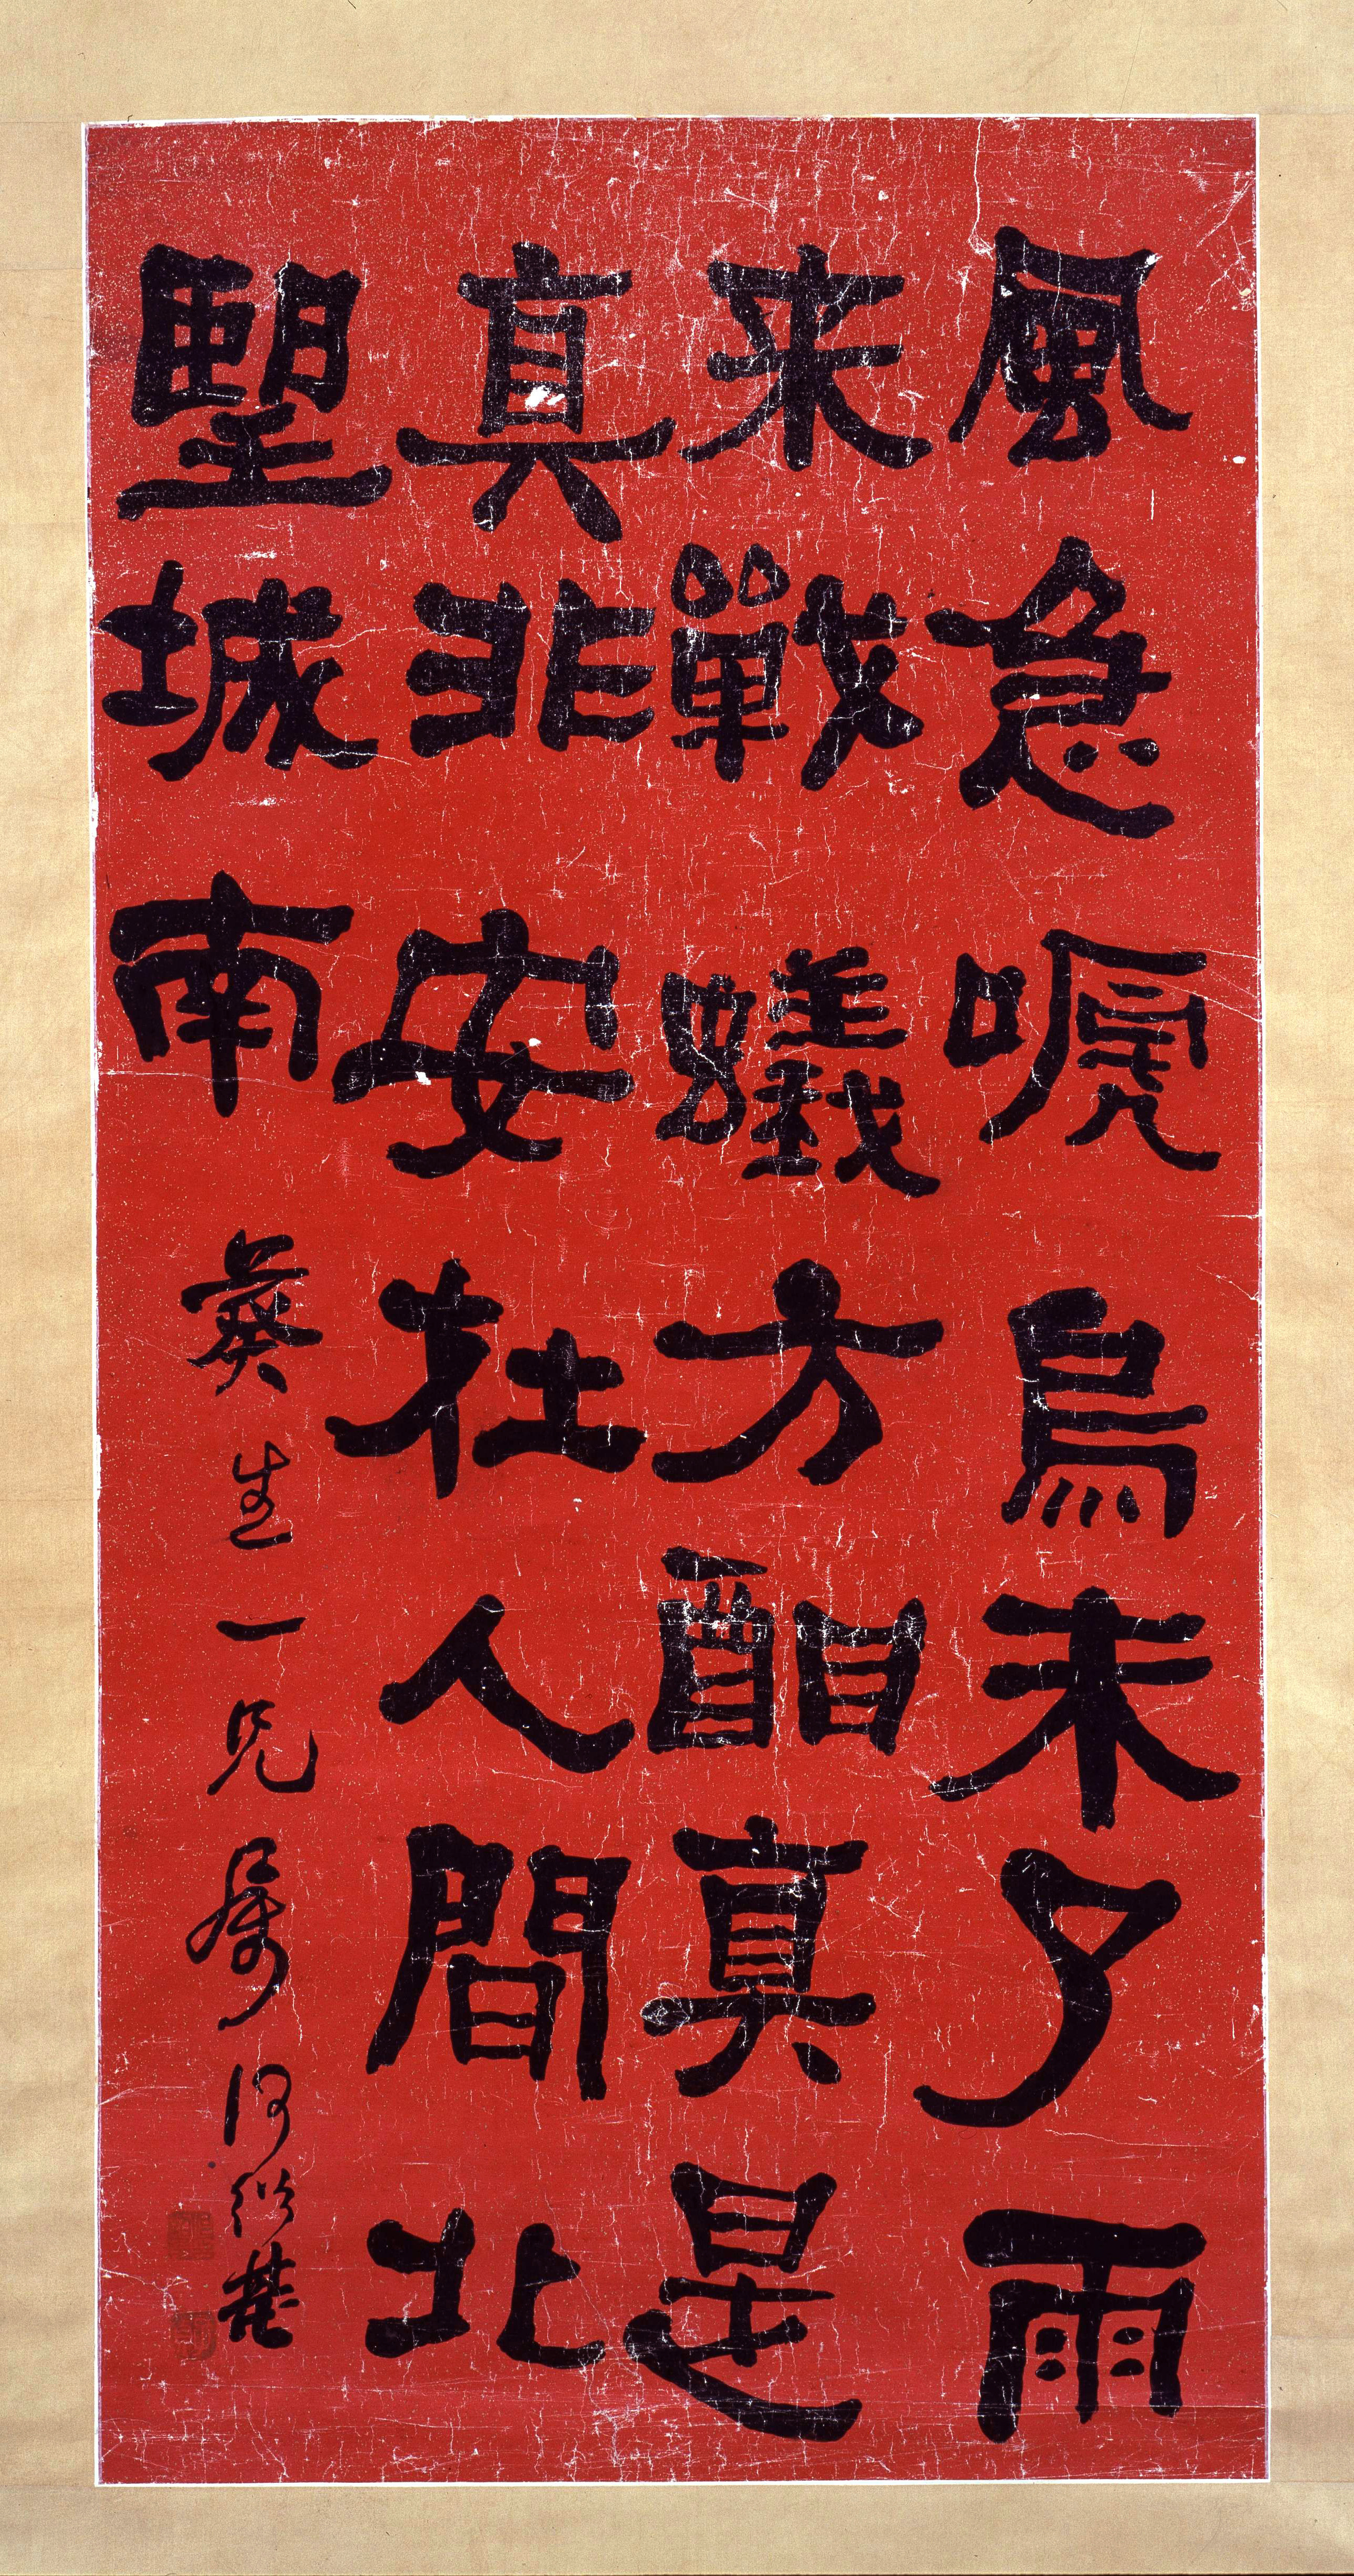 風急嗁烏未了雨
来戰蟻方酣真是
真非安在人間北
朢城南
彝生一兄屬何紹基